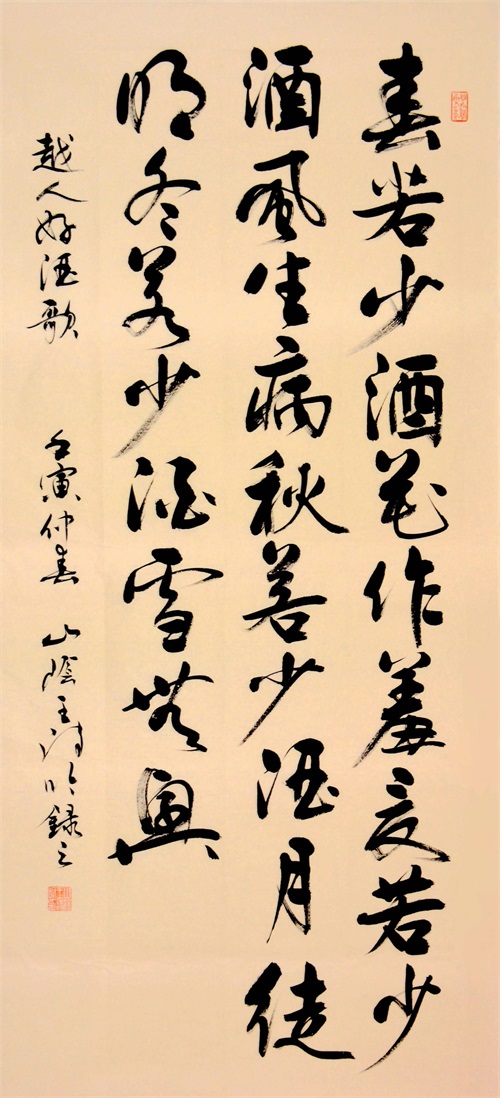 春若少酒花作羞夏若少
酒風生病秋若少酒月徒
明冬若少酒雪無興
越人好酒歌 壬寅仲春 山陰王詩 錄之